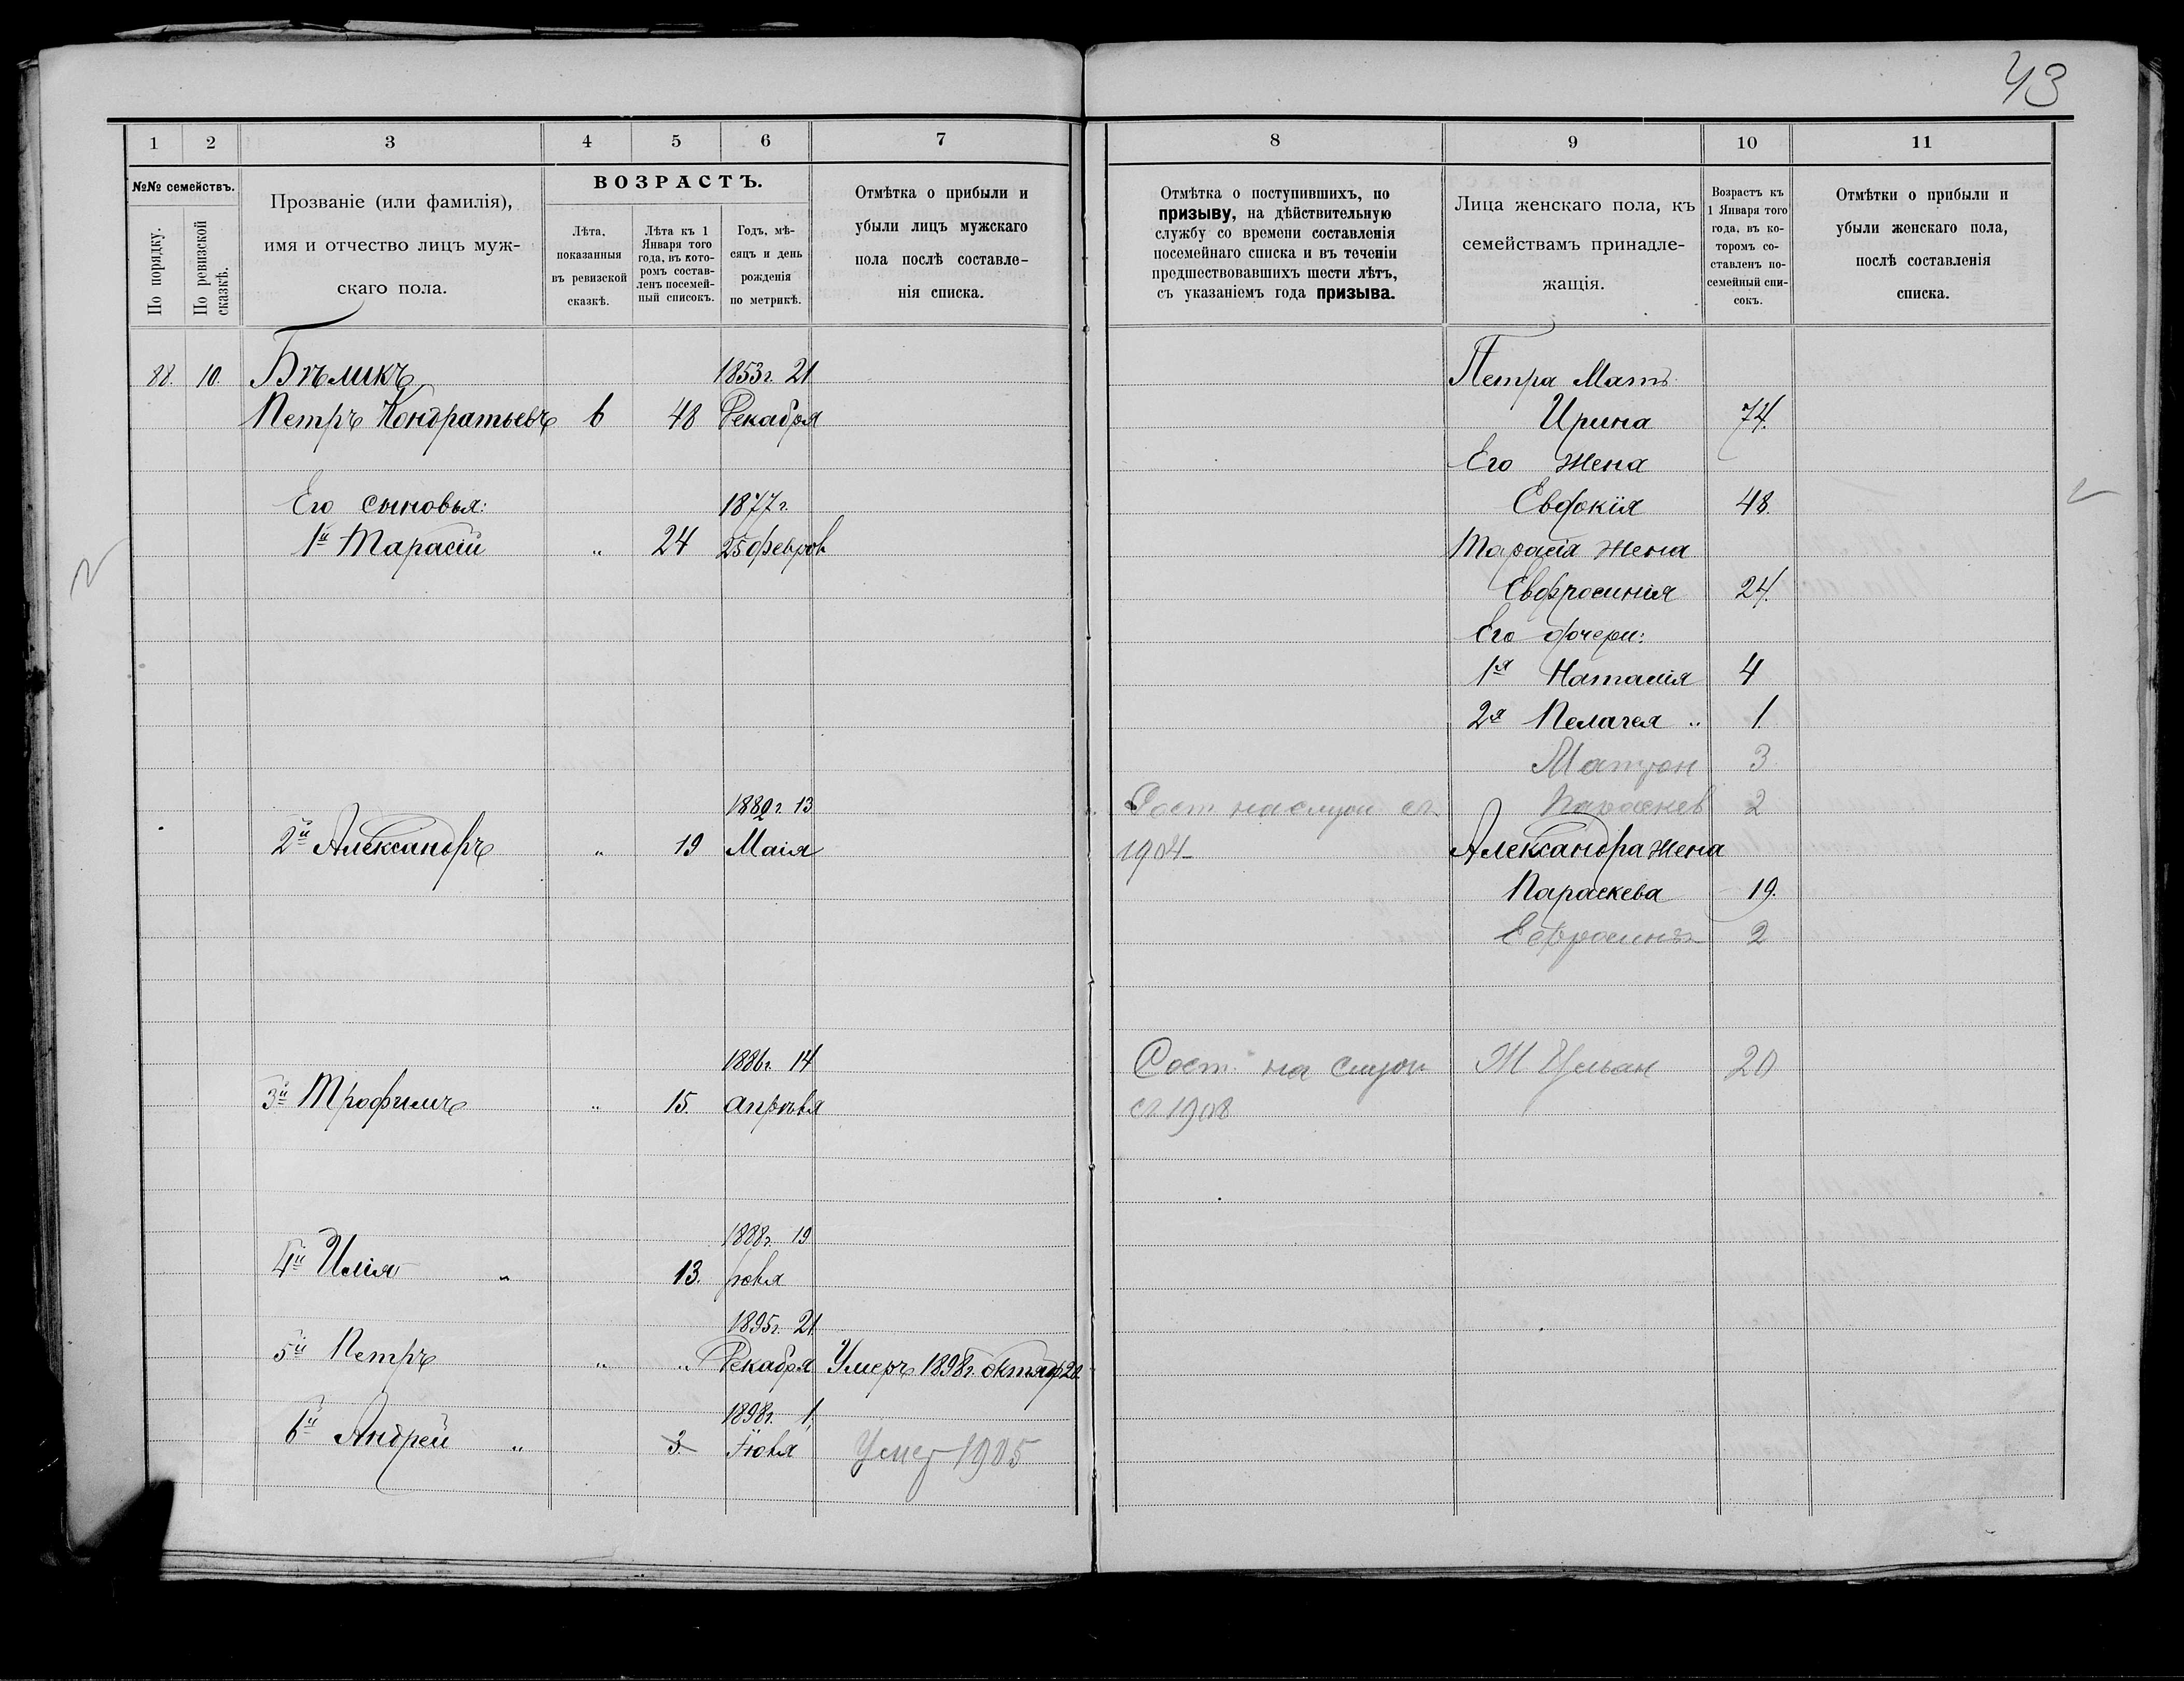 43
1 2 3 4 5 6 7
№№ семействъ.
По порядку.
По ревизской сказкѣ.
Прозваніе (или фамилія),
имя и отчество лицъ муж-
скаго пола.
ВОЗРАСТЪ.
Лѣта,
показанныя
въ ревизской
сказкѣ.
Лѣта къ 1
Января того
года, въ кото-
ромъ состав-
ленъ посемей-
ный списокъ.
Годъ, мѣ-
сяцъ и день
рожденія
по метрикѣ.
Отмѣтка о прибыли и
убыли лицъ мужскаго
пола послѣ составле-
нія списка.
88. 10. Бѣликъ 1853г. 21
Петръ Кондратьевъ 6 48 Декабря
Его сыновья: 1877г.
1й Тарасій " 24 25 феврал
1882г. 13
2й Александръ " 19 Маія
1886г. 14
3й Трофимъ " 15. апрѣля
1888г. 19
4й Илія " 13. юля
1895г. 21
5й Петръ " " Декабря Умеръ 1898г. октяб 20.
1898г. 1
6й Андрей " 3. Іюля Умер 1905
8 9 10 11
Отмѣтка о поступившихъ, по
призыву, на дѣйствительную
службу со времени составленія
посемейнаго списка и въ теченіи
предшествовавшихъ шести лѣтъ,
съ указаніемъ года призыва.
Лица женскаго пола, къ
семействамъ принадле-
жащія.
Возрастъ къ
1 Января того
года, въ ко-
торомъ со-
ставленъ по-
семейный спи-
сокъ.
Отмѣтки о прибыли и
убыли женскаго пола,
послѣ составленія
списка.
Петра Мать
Ирина 74.
Его Жена
Евдокія 48.
Тарасія Жена
Евфросинія 24.
Его дочери:
1я Натасія 4
2я Пелагея " 1.
Матрон 3
Сост на служ съ Параскев 2
1904 Александра Жена
Параскева 19.
Ефросинья 2
Сост на служ Ж Ульан 20
съ 1908